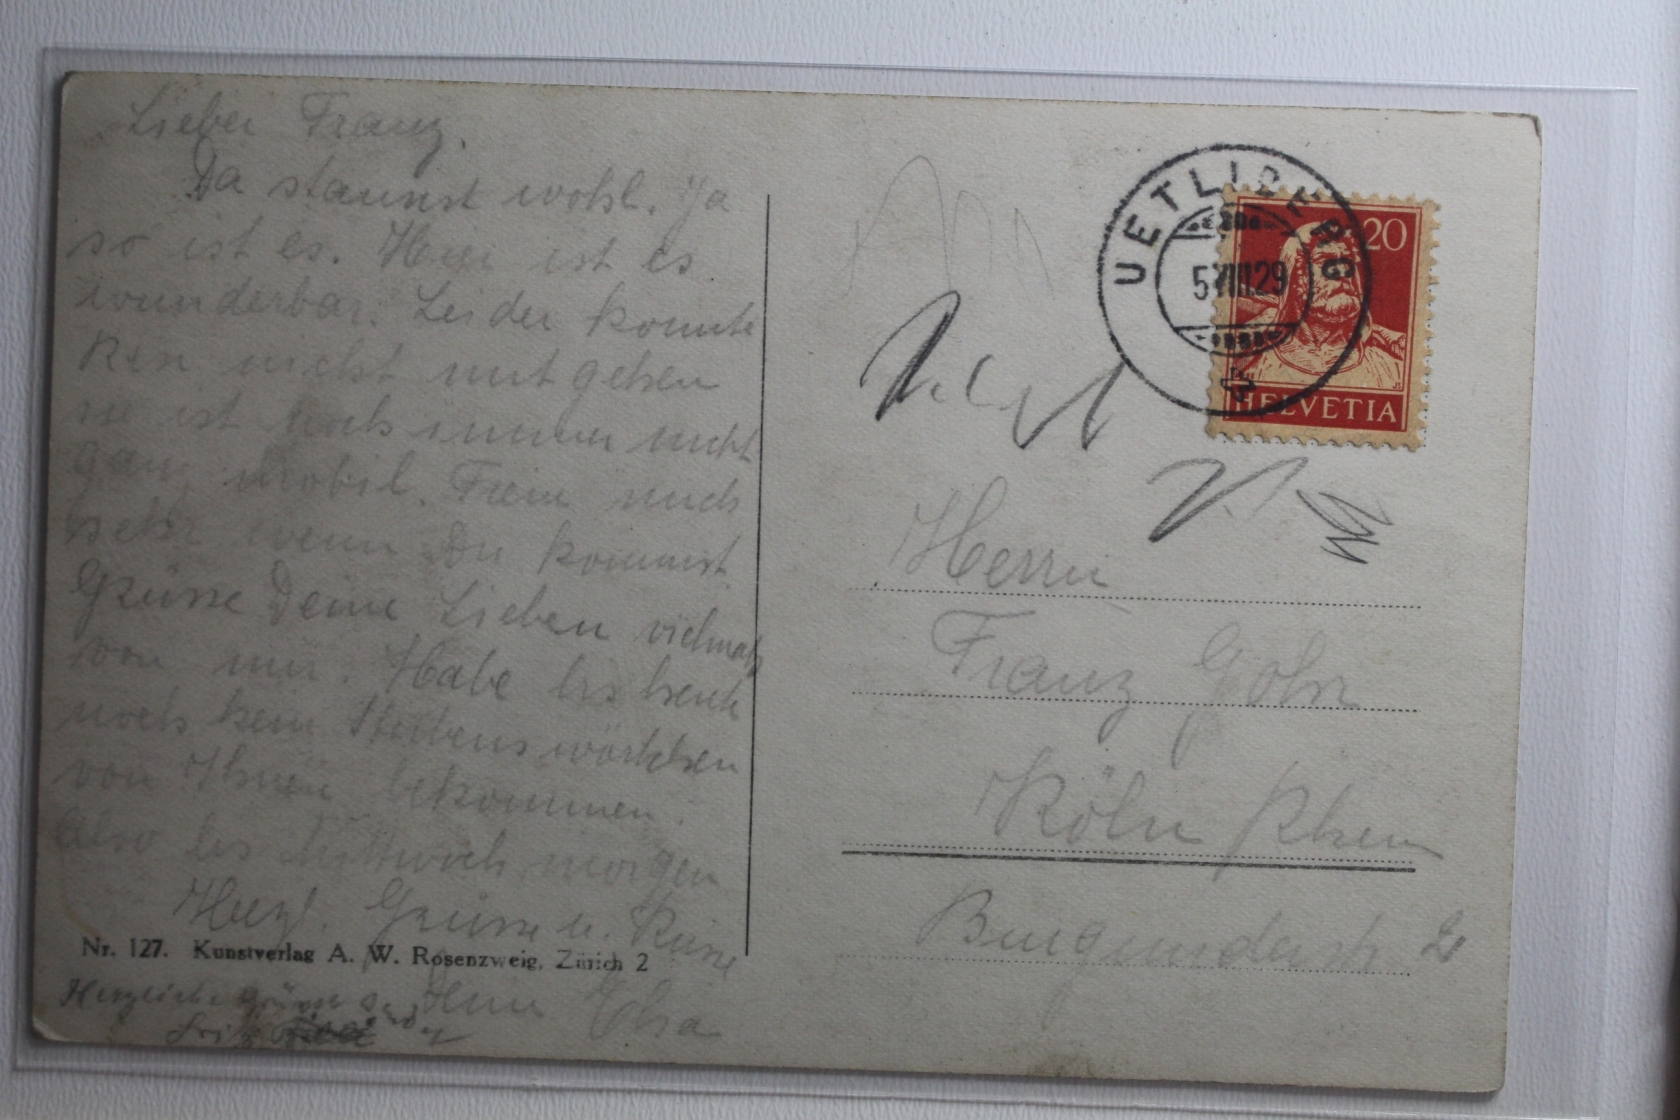 Lieber Franz.
Da staunst wohl. Ja
so ist es. Hier ist es
wunderbar. Leider konnte
nicht mit gehen
sie ist noch immer nicht
ganz mobil. Freue mich
sehr wenn Du kommst.
Grüsse Deine Lieben vielmals
von mir. Habe bis heute
noch kein
von Ihnen bekommen.
Also bis Mittwoch morgen
Herzl. Grüsse u. Küsse
Nr. 127. Kunstverlag A. W. Rosenzweig, Zürich 2
Herzliche Grüsse
UETLIBERG
5.VIII.29
20
HELVETIA
Herrn
Franz Göhr
Köln Rhein